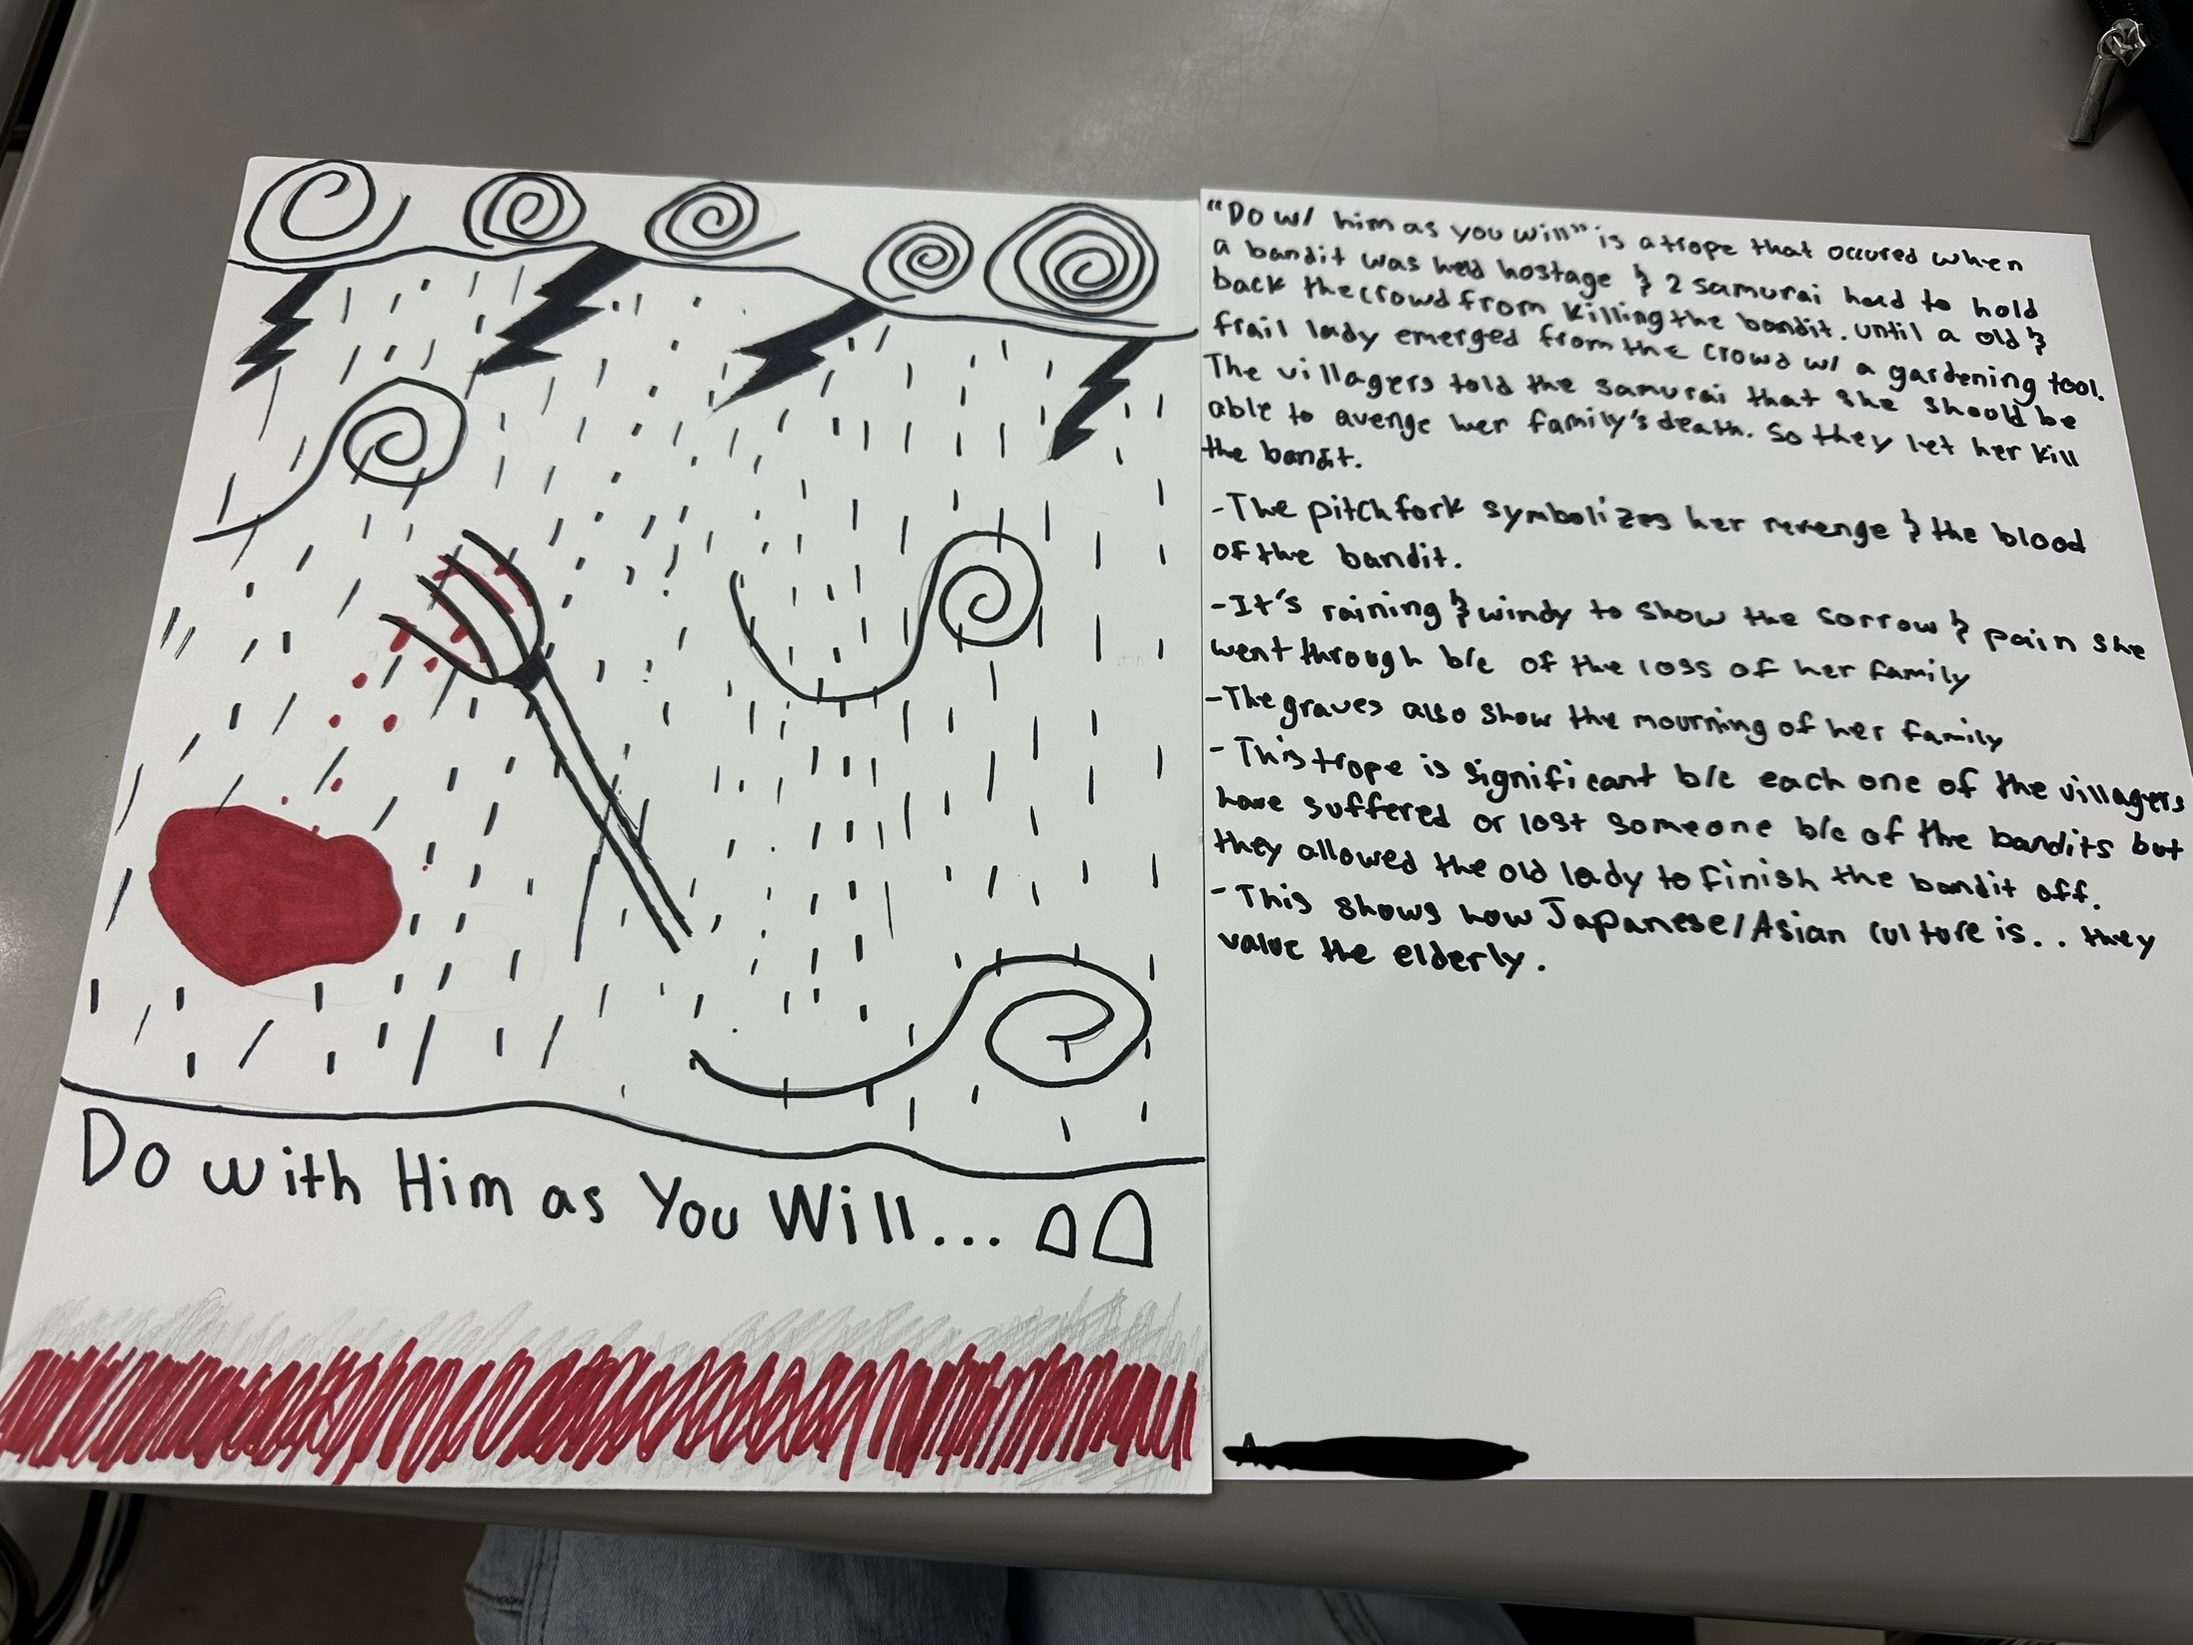 Do with Him as You Will...
"Do w/ him as you will" is a trope that occured when
a bandit was held hostage & 2 samurai had to hold
back the crowd from killing the bandit. until a old &
frail lady emerged from the crowd w/ a gardening tool.
The villagers told the samurai that she should be
able to avenge her family's death. So they let her kill
the bandit.
-The pitchfork symbolizes her revenge & the blood
of the bandit.
-It's raining & windy to show the sorrow & pain she
went through b/c of the loss of her family
-The graves also show the mourning of her family
-This trope is significant b/c each one of the villagers
have suffered or lost someone b/c of the bandits but
they allowed the old lady to finish the bandit off.
-This shows how Japanese/Asian culture is.. they
value the elderly.